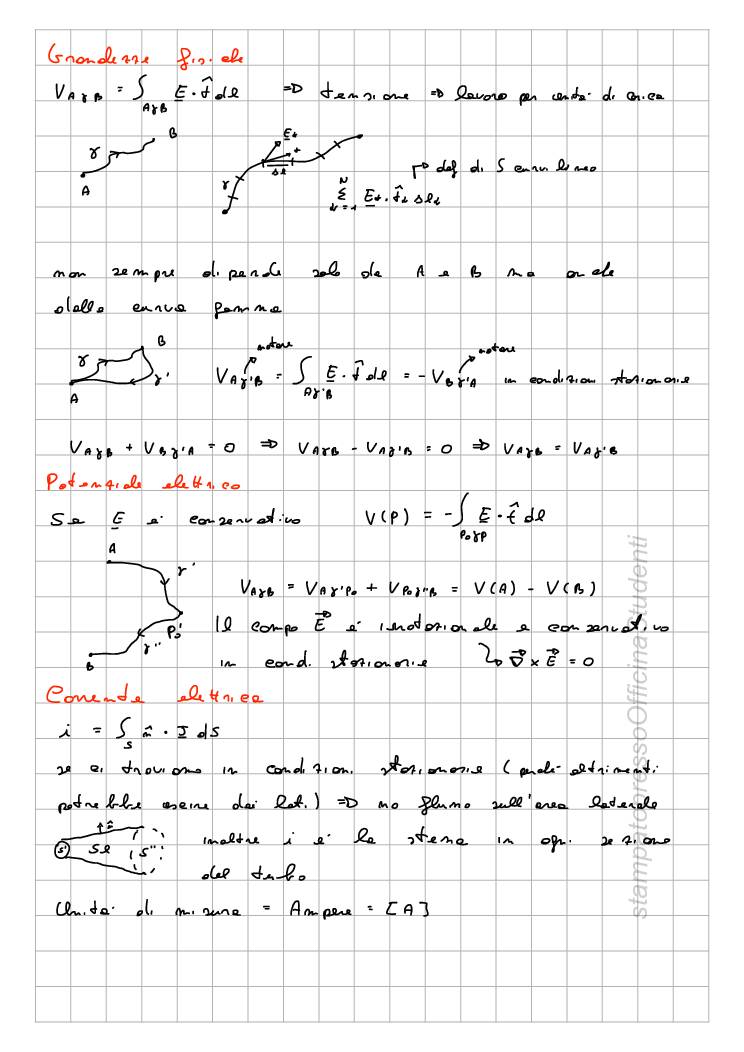 Grandezze fisiche
V_AγB = ∫_AγB E · t̂ dl ⇒ tensione ⇒ lavoro per unità di carica
A γ B
γ Δl E_k t
↱ def di ∫ curvilineo
N Σ k=1 E_k · t̂_k Δl_k
non sempre dipende solo da A e B ma anche
dalla curva gamma
A γ B γ'
notare notare
V_Aγ'B = ∫_Aγ'B E · t̂ dl = - V_Bγ'A in condizioni stazionarie
V_AγB + V_Bγ'A = 0 ⇒ V_AγB - V_Aγ'B = 0 ⇒ V_AγB = V_Aγ'B
Potenziale elettrico
Se E è conservativo V(P) = - ∫_P₀γP E · t̂ dl
A γ' P₀ γ'' B
V_AγB = V_Aγ'P₀ + V_P₀γ''B = V(A) - V(B)
Il campo E è irrotazionale e conservativo
in cond. stazionarie ↳ ∇ × E = 0
Corrente elettrica
i = ∫_S n̂ · J dS
se ci troviamo in condizioni stazionarie (perché altrimenti
potrebbe uscire dai lat.) ⇒ no flusso sull'area laterale
S' Sl S'' n̂
inoltre i è la stessa in ogni sezione
del tubo
Unità di misura = Ampere = [A]
stampatopressoOfficinaStudenti